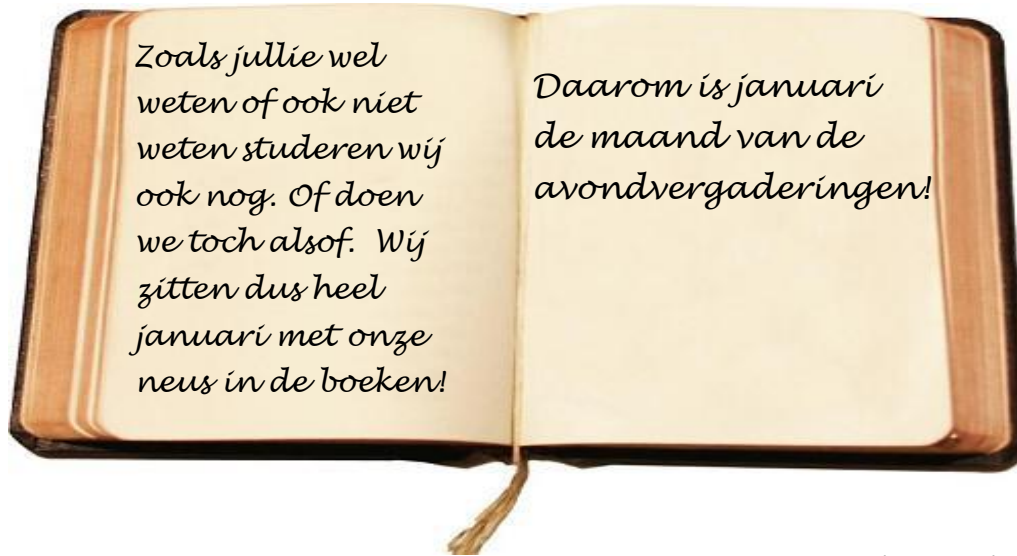 Zoals jullie wel
weten of ook niet
weten studeren wij
ook nog. Of doen
we toch alsof.  Wij
zitten dus heel
januari met onze
neus in de boeken!
Daarom is januari
de maand van de
avondvergaderingen!